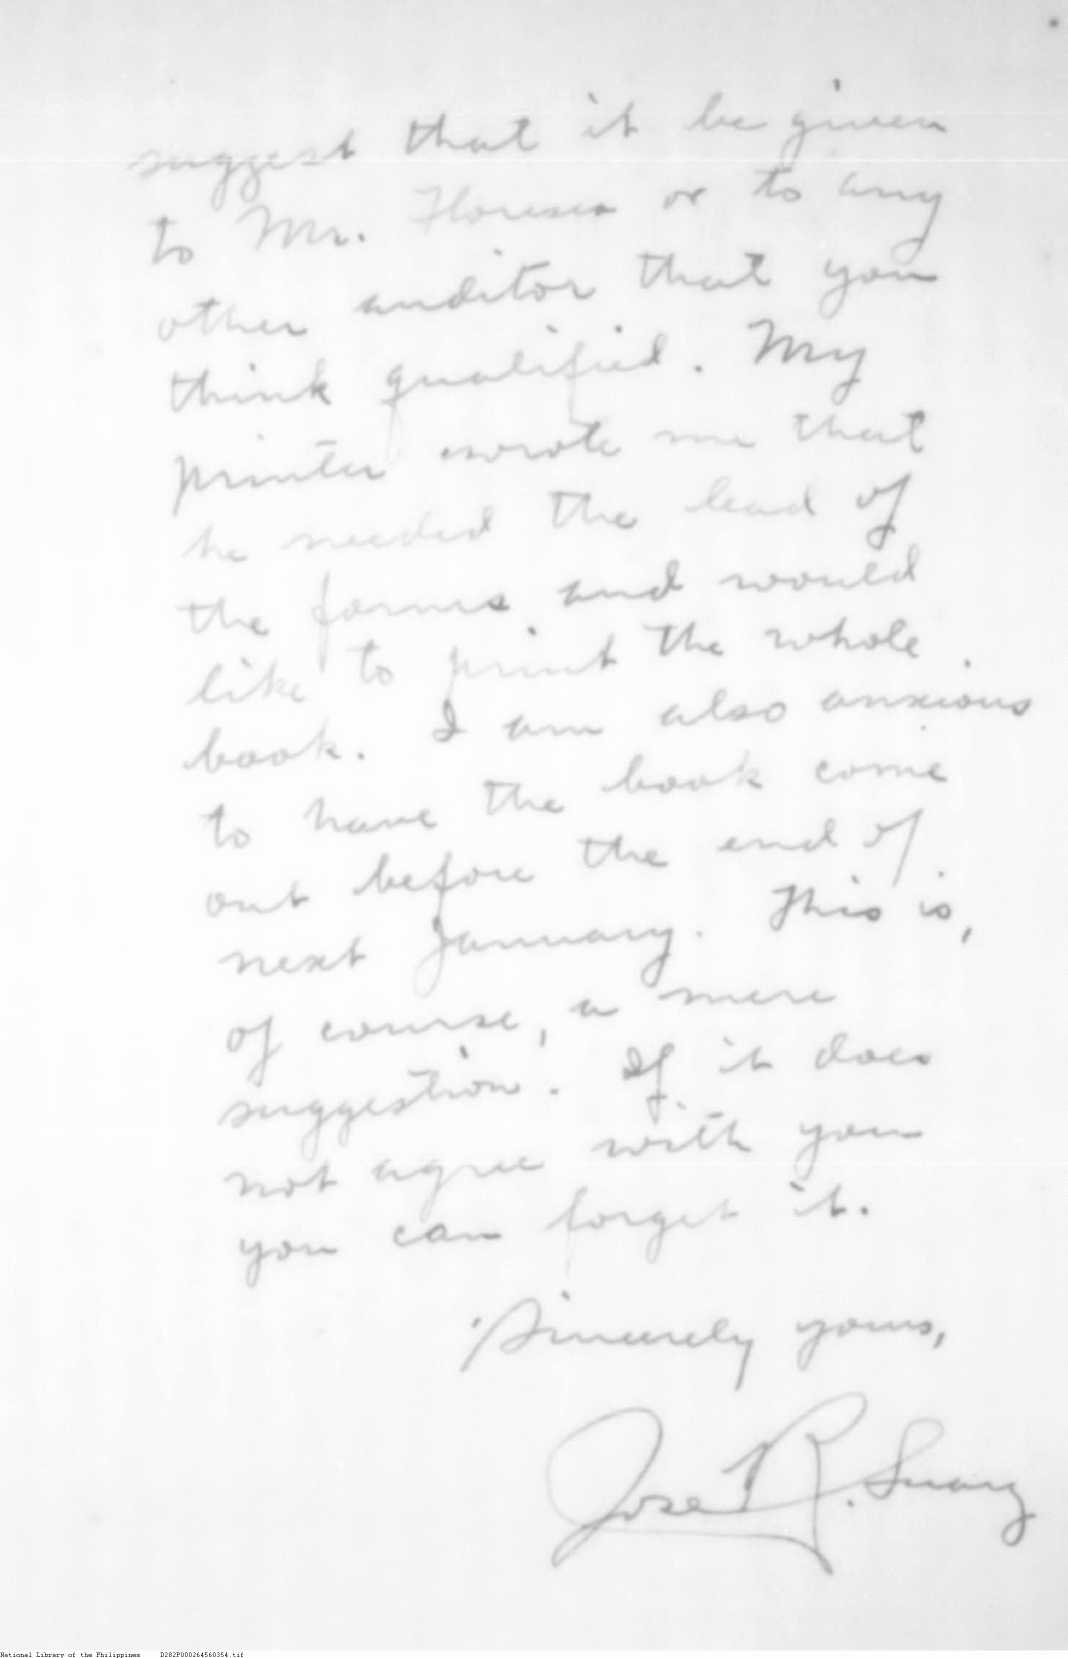 suggest that it be given
to Mr. or to any
other auditor that you
think qualified. My
printer wrote me that
he needed the lead of
the forms and would
like to print the whole
book. I am also anxious
to have the book come
out before the end of
next January. This is,
of course, a mere
suggestion. If it does
not agree with you
you can forget it.
Sincerely yours,
Jose R.
National Library of the Philippines D282P000264560354.tif